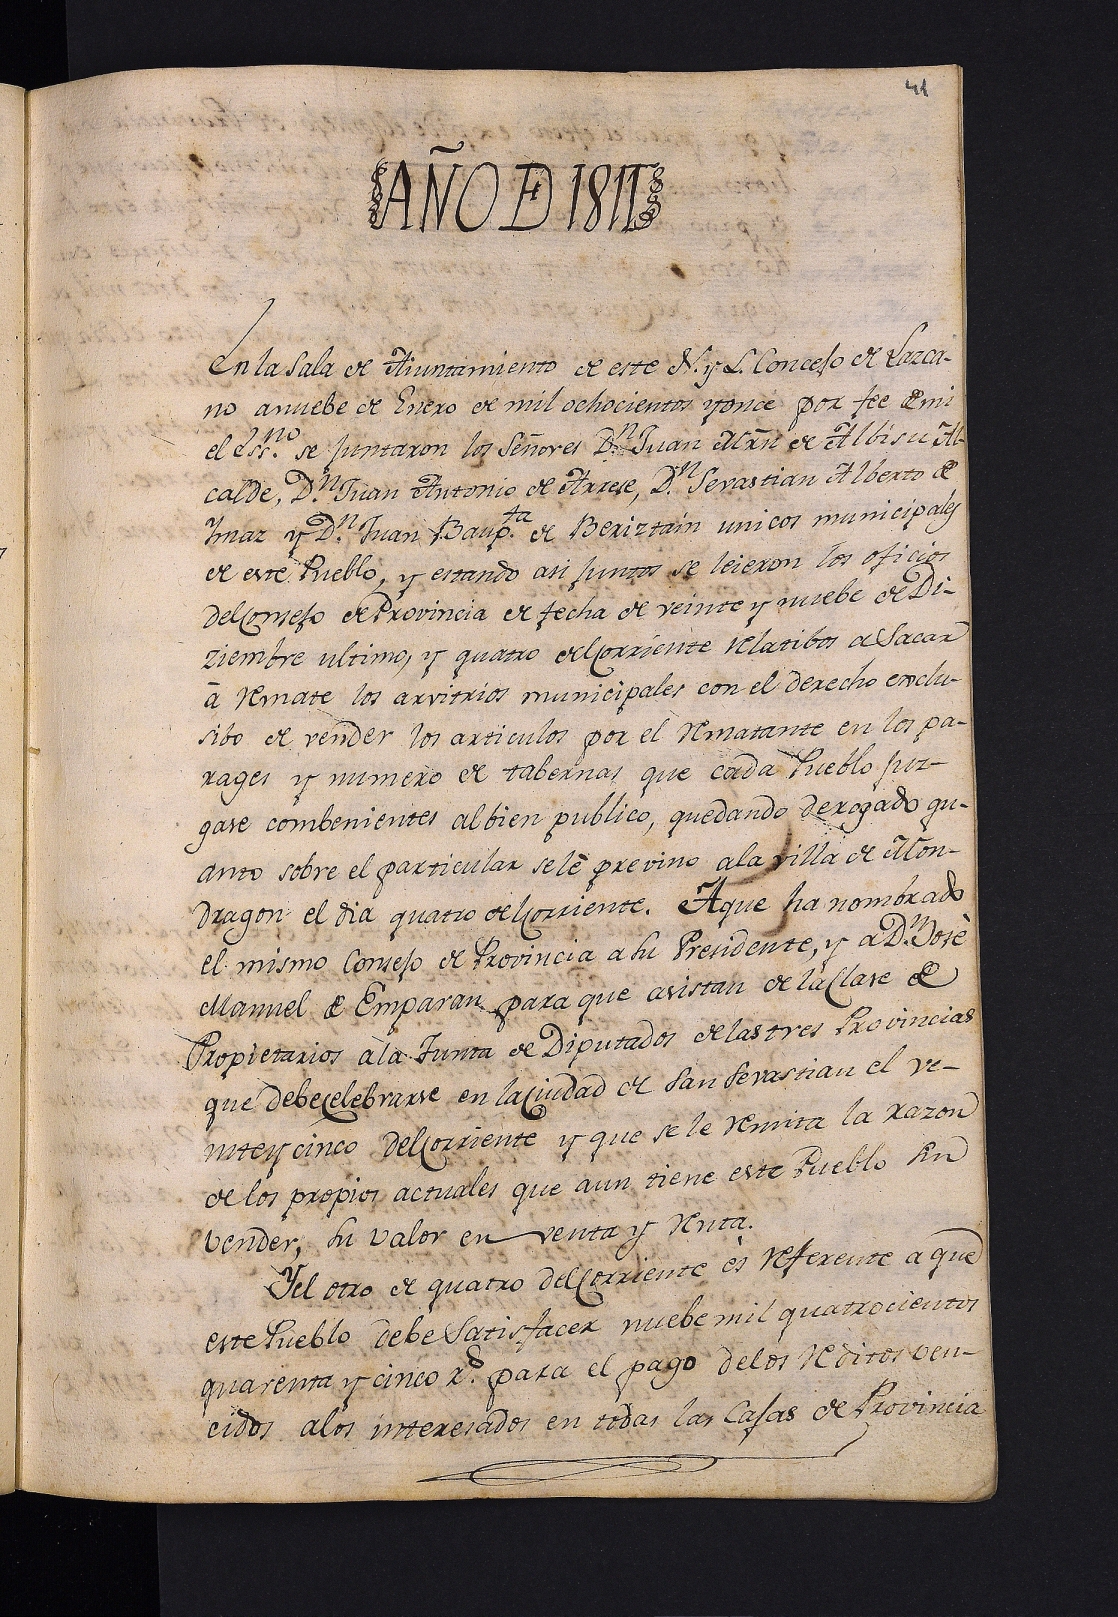 41
AÑO DE 1811
En la Sala de Aiuntamiento de este N. y L. Concejo de Lazca-
no anuebe de Enero de mil ochocientos yonce por fee de mi
el Ess.no se juntaron los Señores D.n Juan Mrn de Albisu Al-
calde, D.n Juan Antonio de Arrese, D.n Sevastian Alberto de
Ymaz y D.n Juan Baup.ta de Beriztain unicos municipales
de este Pueblo, y estando asi juntos se leieron los oficios
delConsejo de Provincia de fecha de veinte y nuebe de Di-
ziembre ultimo, y quatro delCorriente relatibos a Sacar
à remate los arvitrios municipales con el derecho exclu-
sibo de vender los articulos por el rematante en los pa-
rages y numero de tabernas que cada Pueblo juz-
gase combenientes albien publico, quedando derogado qu-
anto sobre el particular selè previno ala villa de Mon-
dragon el dia quatro delCorriente. Aque ha nombrado
el mismo Consejo de Provincia a su Presidente, y a D.n Josè
Manuel de Emparan para que asistan de laClase de
Propietarios àla Junta de Diputados delastres Provincias
que debecelebrarse en laCiudad de San Sevastian el ve-
inteycinco delCorriente y que se le remita la razon
de los propios actuales que aun tiene este Pueblo sin
vender, su valor en venta y renta.
Yel otro de quatro delCorriente ès referente a que
este Pueblo debe Satisfacer nuebe mil quatrocientos
quarenta y cinco r.s para el pago delos reditos ven-
cidos alos interesados en todas las Casas de Provincia